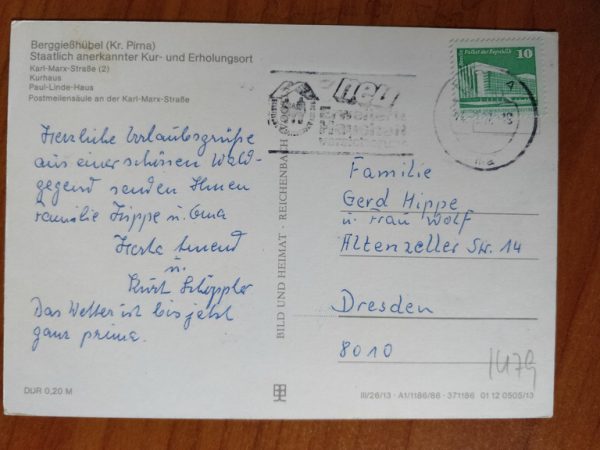 Berggießhübel (Kr. Pirna)
Staatlich anerkannter Kur- und Erholungsort
Karl-Marx-Straße (2)
Kurhaus
Paul-Linde-Haus
Postmeilensäule an der Karl-Marx-Straße
Herzliche Urlaubsgrüße
aus einer schönen Wald-
gegend senden Ihnen
Familie Hippe u. Oma
Herta
u.
Kurt
Das Wetter ist bis jetzt
ganz prima.
DDR 0,20 M
BILD UND HEIMAT · REICHENBACH
neu
10
Palast der Republik
DDR
Familie
Gerd Hippe
u. Frau Wolf
Altenzeller Str. 14
Dresden
8010
1479
III/26/13 · A1/1186/86 · 371186 01 12 0505/13